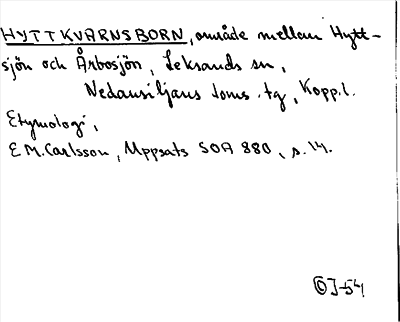 HYTTKVARNSBORN, område mellan Hytt-
sjön och Årbosjön, Leksands sn,
Nedansiljans doms. tg, Kopp.l.
Etymologi,
E M. Carlsson, Uppsats SOA 880, s. 14.
©J-54